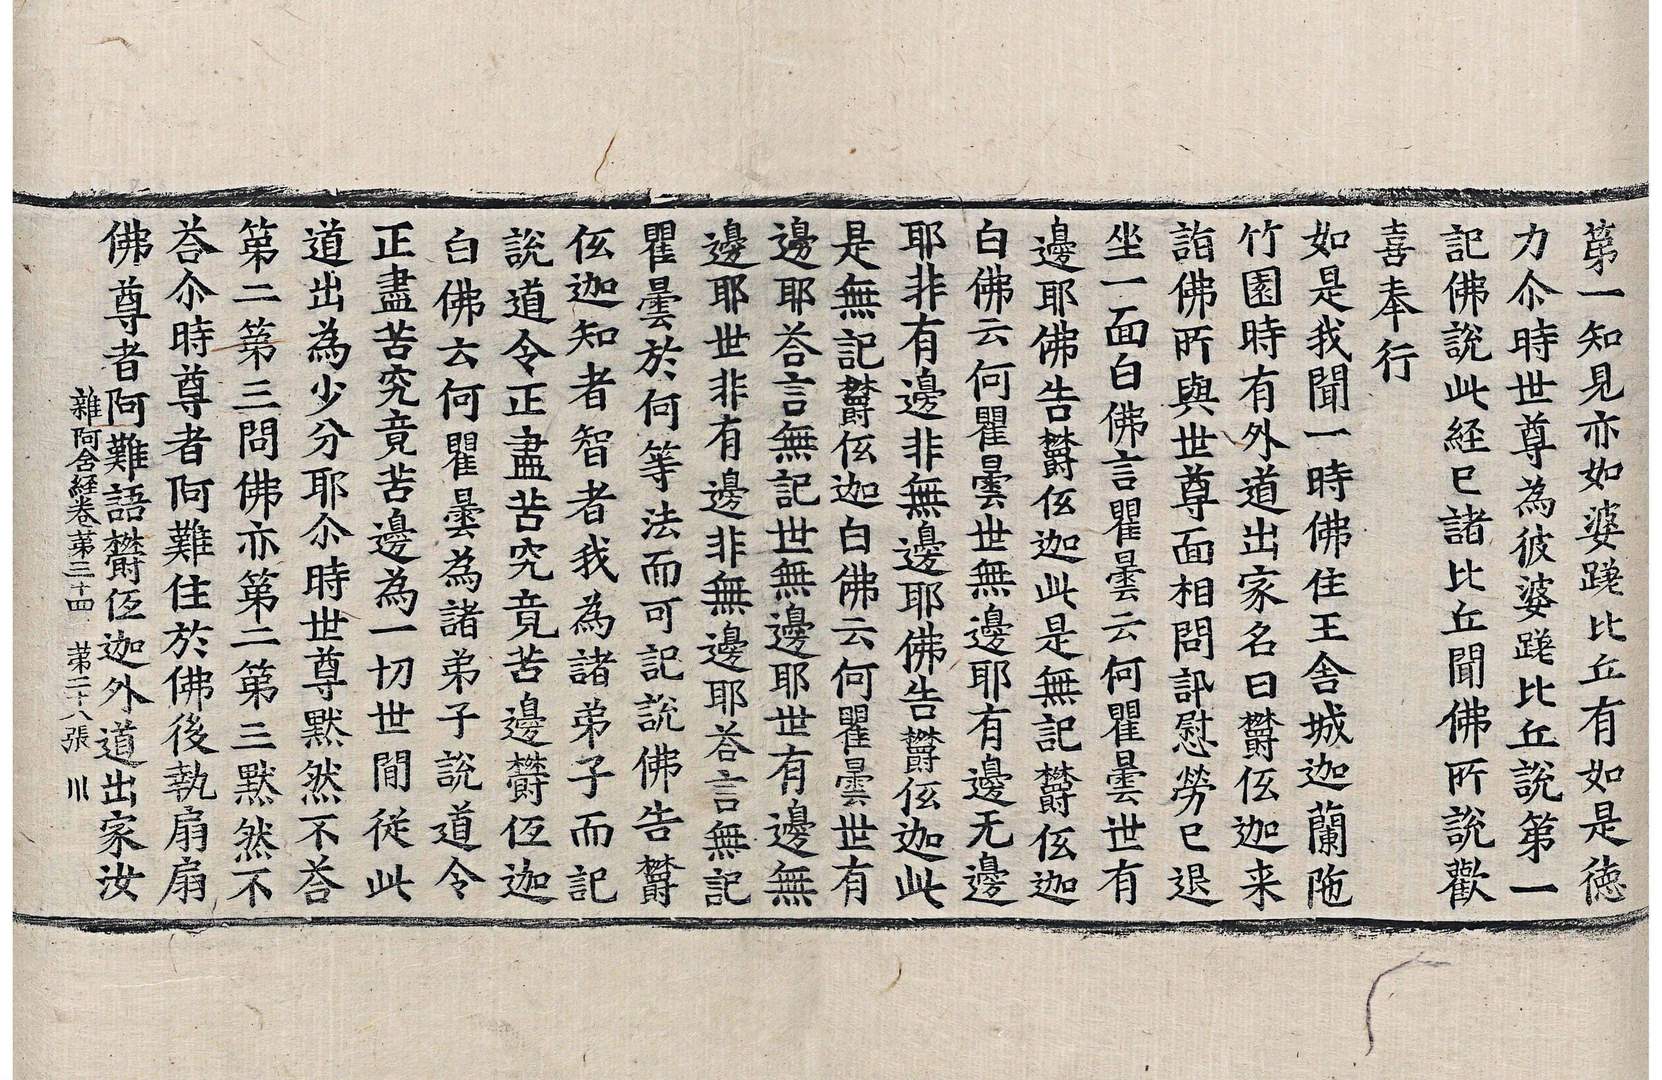 第一知見亦如婆蹉比丘有如是徳
力尒時世尊為彼婆蹉比丘說第一
記佛說此経已諸比丘聞佛所說歡
喜奉行
如是我聞一時佛住王舍城迦蘭陁
竹園時有外道出家名曰欝伭迦来
詣佛所與世尊面相問訊慰勞已退
坐一面白佛言瞿曇云何瞿曇世有
邊耶佛告欝伭迦此是無記欝伭迦
白佛云何瞿曇世無邊耶有邊无邊
耶非有邊非無邊耶佛告欝伭迦此
是無記欝伭迦白佛云何瞿曇世有
邊耶荅言無記世無邊耶世有邊無
邊耶世非有邊非無邊耶荅言無記
瞿曇於何等法而可記說佛告欝
伭迦知者智者我為諸弟子而記
說道令正盡苦究竟苦邊欝伭迦
白佛云何瞿曇為諸弟子說道令
正盡苦究竟苦邊為一切世間従此
道出為少分耶尒時世尊黙然不荅
第二第三問佛亦第二第三黙然不
荅尒時尊者阿難住於佛後執扇扇
佛尊者阿難語欝伭迦外道出家汝
雜阿含経卷第三十四 第二十八張 川